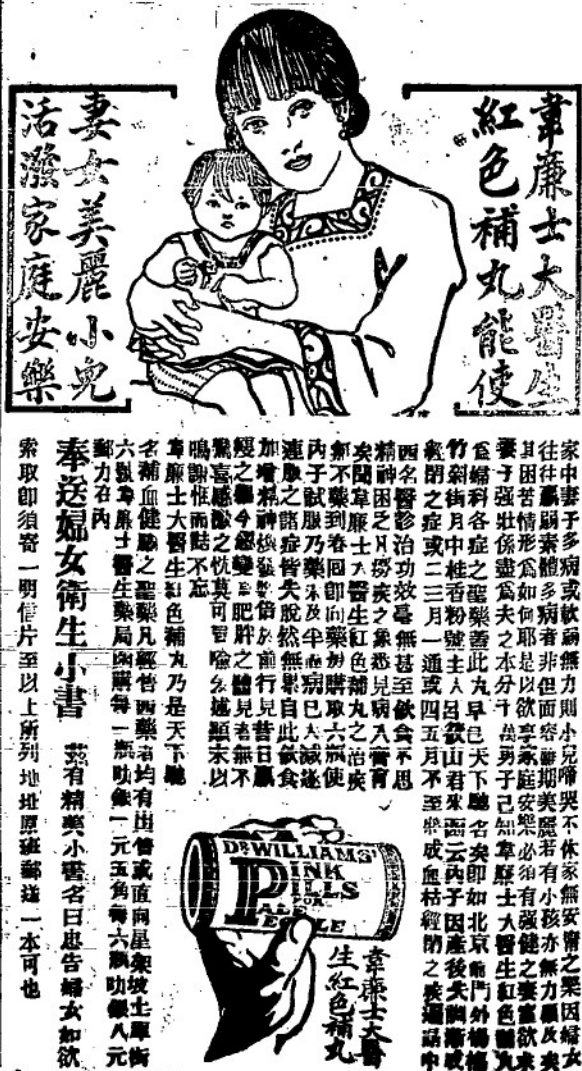 韋廉士大醫生
紅色補丸能使
妻女美麗小兒
活潑家庭安樂
家中妻子多病或軟弱無力則小兒啼哭不休家無安甯之樂因婦女
往往羸弱素體多病者非但面容難期美麗若有小孩亦無力顧及矣
其困苦情形爲如何耶是以欲享家庭安樂必須有强健之妻室欲求
妻子强壯係盡爲夫之本分千萬男子已知韋廉士大醫生紅色補丸
爲婦科各症之聖藥蓋此丸早已天下馳名矣即如北京前門外楊梅
竹斜街月中桂香粉號主人呂飲山君來函云內子因產後失調漸成
經閉之症或二三月一通或四五月不至將成血枯經閉之疾遍請中
西名醫診治功效毫無甚至飲食不思
精神困乏凡癆疾之象悉見病入膏肓
矣聞韋廉士大醫生紅色補丸之治疾
無不藥到春回即向藥房購取六瓶使
內子試服乃藥未及半而病已大減遂
連服之諸症皆失脫然無累自此飲食
加增精神煥發數倍於前行見昔日羸
瘦之軀今忽變爲肥胖之體見者無不
驚喜感激之忱莫可言喻爰述顛末以
鳴謝悃而誌不忘
韋廉士大醫生紅色補丸乃是天下馳
名補血健腦之聖藥凡經售西藥者均有出售或直向星架坡士單街
六號韋廉士醫生藥局函購每一瓶叻銀一元五角每六瓶叻銀八元
郵力在內
奉送婦女衛生小書 茲有精美小書名曰忠告婦女如欲
索取即須寄一明信片至以上所列地址原班郵送一本可也
DR WILLIAMS'
PINK
PILLS
FOR
PALE
PEOPLE
韋廉士大醫
生紅色補丸